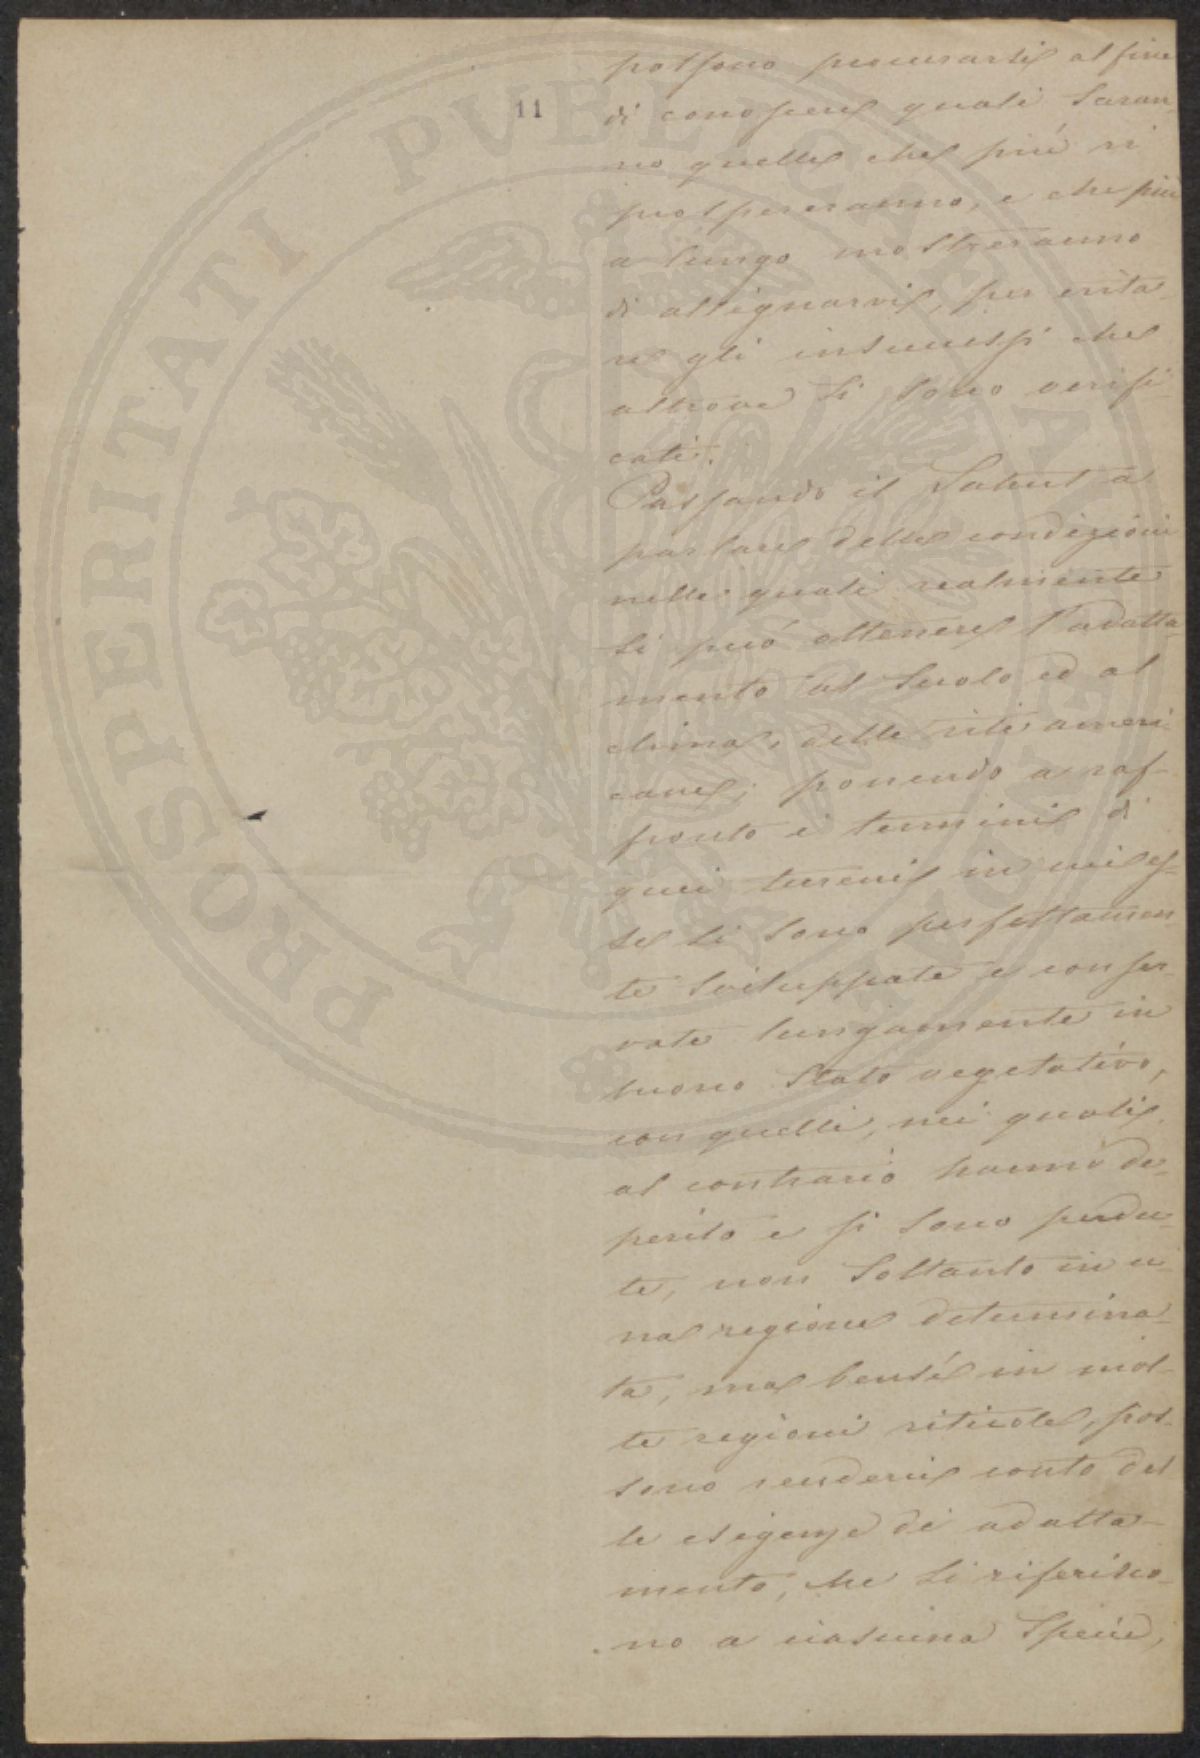 11
possono procurarsi al fine
di conoscere quali saran-
no quelle che più vi
prospereranno, e che più
a lungo mostreranno
di attignarvi, per evita-
re gli insuccessi che
altrove si sono verifi-
cati.
Passando il Sahut a
parlare delle condizioni
nelle quali realmente
si può ottenere l'adatta-
mento al suolo ed al
clima, delle viti ameri-
cane; ponendo a raf-
fronto i terreni di
quei terreni in cui es-
se si sono perfettamen-
te sviluppate e conser-
vate lungamente in
buono stato vegetativo,
con quelli, nei quali
al contrario hanno de-
perito e si sono perdu-
te, non soltanto in u-
na regione determina-
ta, ma bensì in mol-
te regioni viticole, pos-
sono rendersi conto del-
le esigenze di adatta-
mento, che si riferisco-
no a ciascuna specie,
PROSPERITATI PVBLICAE AVGENDAE